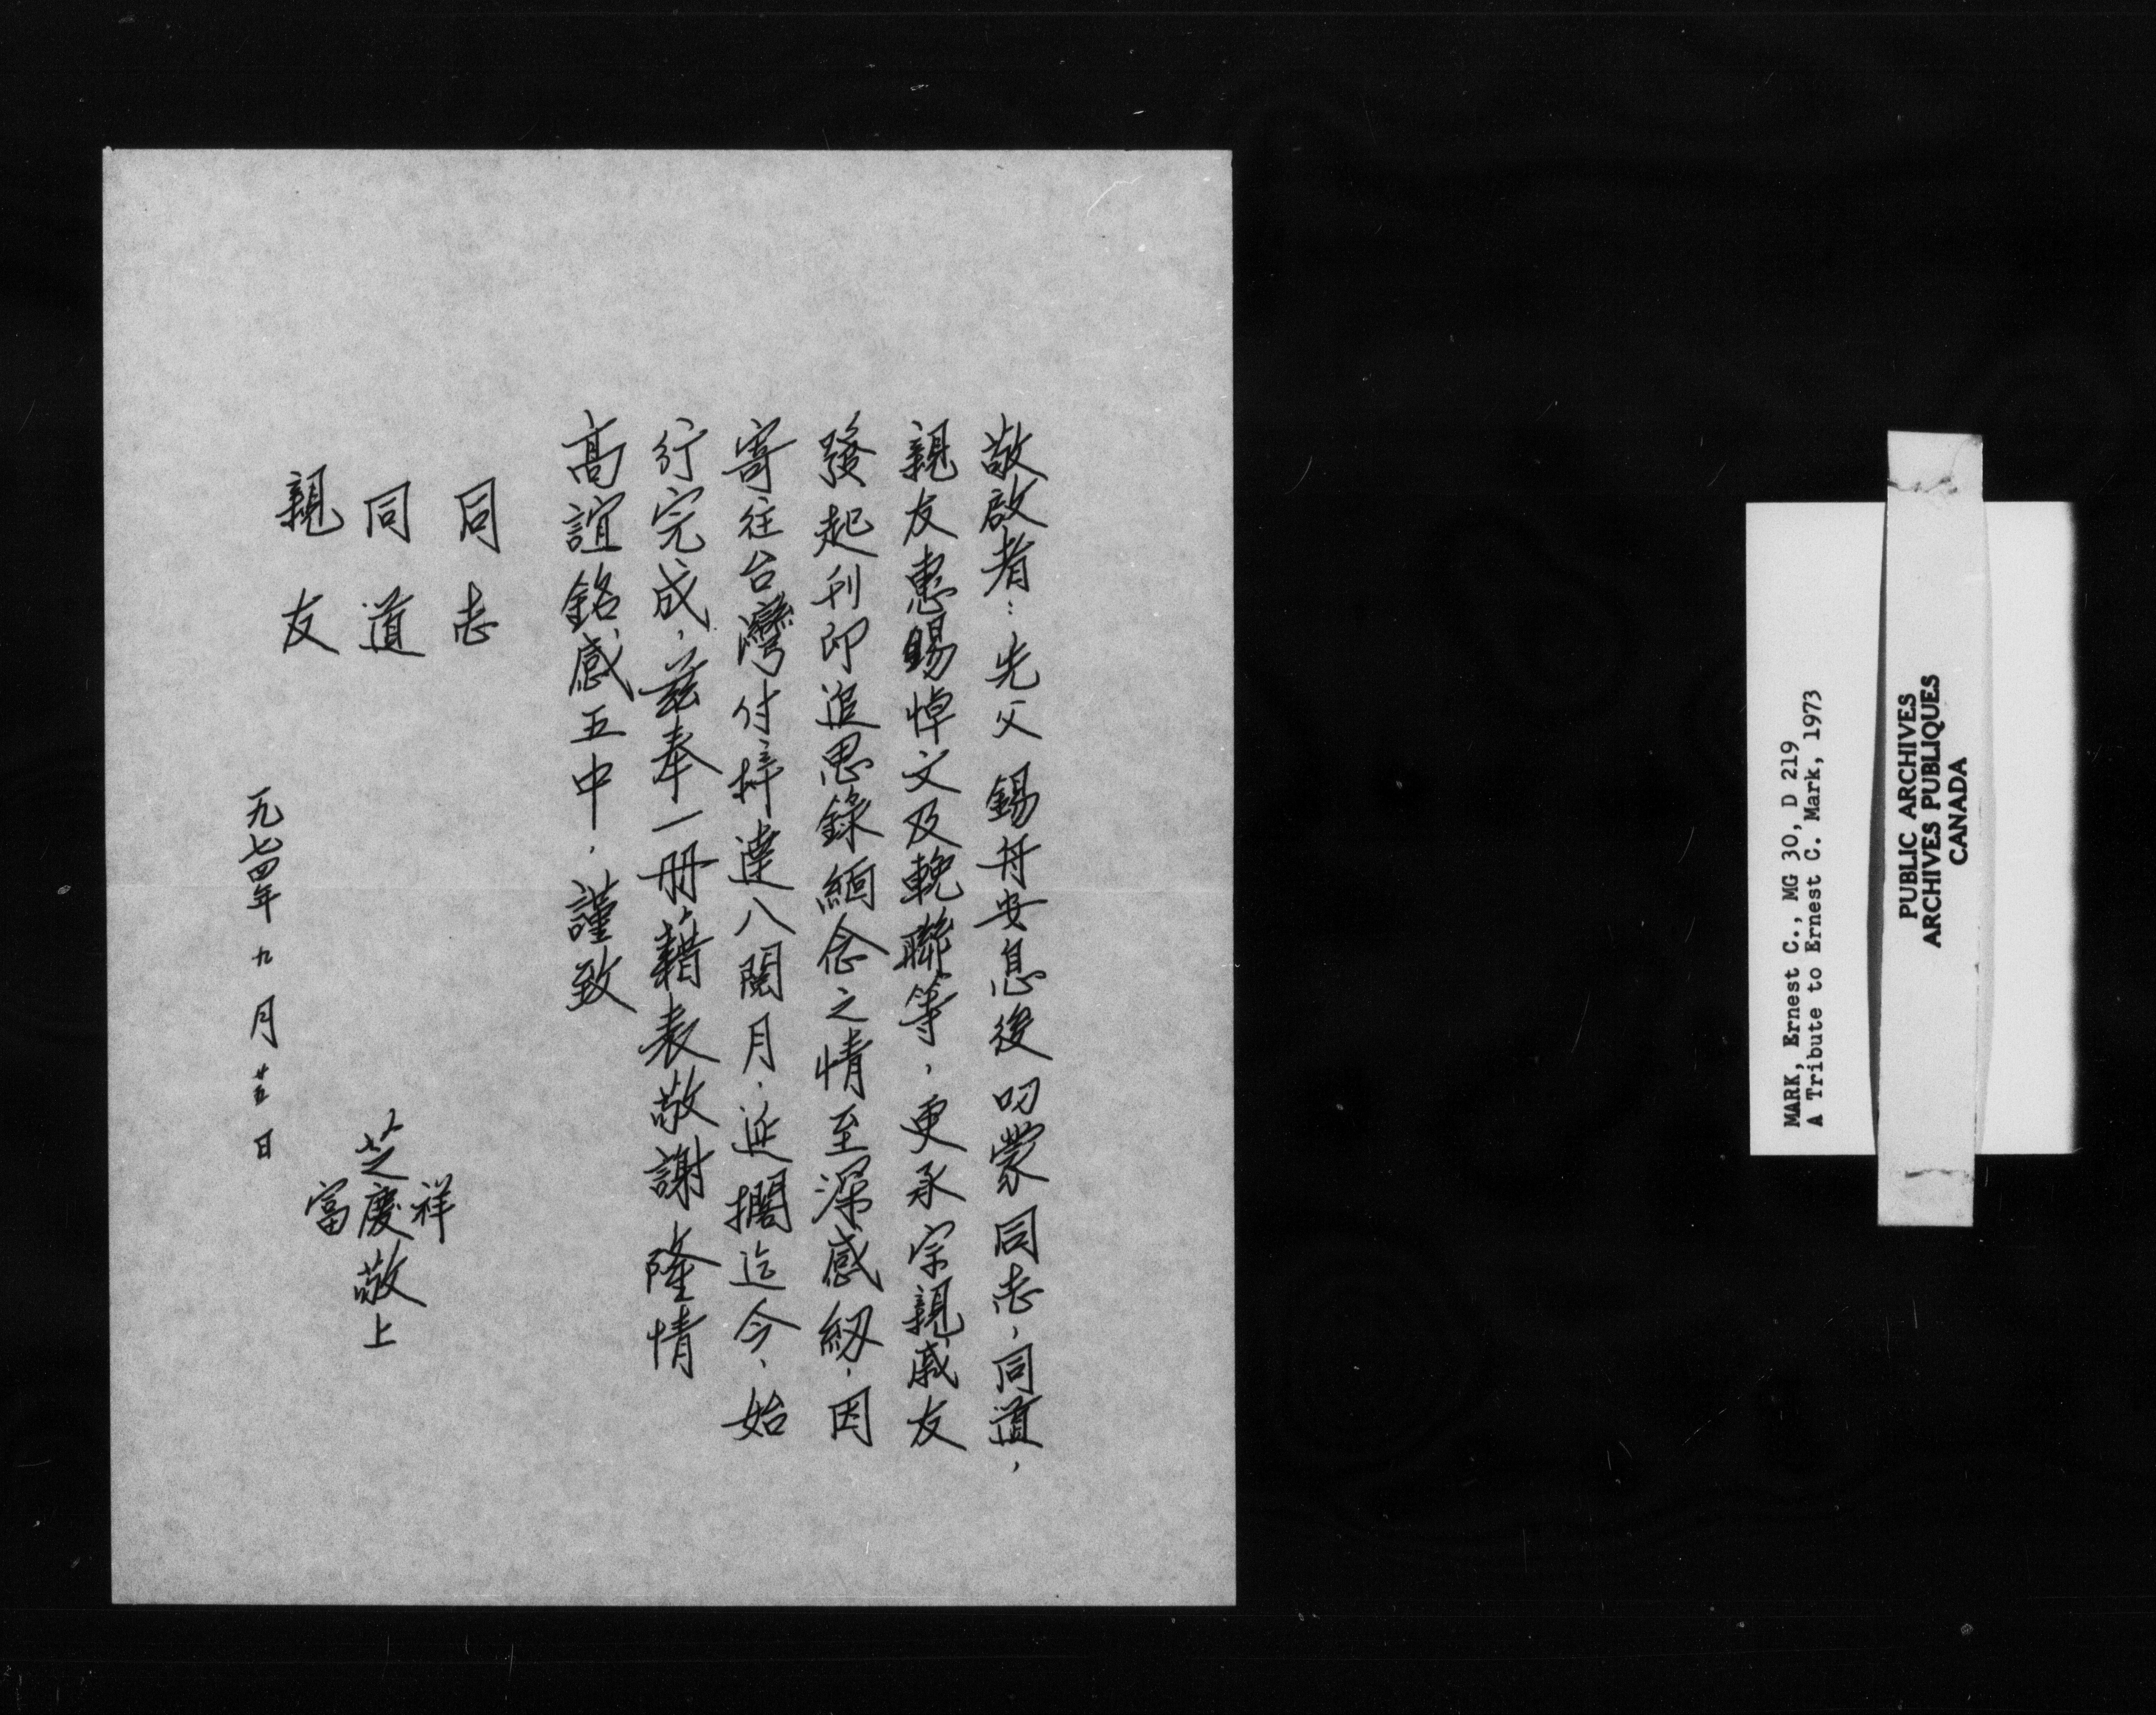 敬啟者：先父 錫舟安息後叨蒙同志，同道，
親友惠錫悼文及輓聯等，更承宗親戚友
發起刋印追思錄緬念之情至深感紉，因
寄往台灣付梓達八閱月，延擱迄今，始
行完成，茲奉一册藉表敬謝隆情
高誼銘感五中，謹致
同志
同道
親友
芝祥
慶
富
敬上
一九七四年九月廿五日
MARK, Ernest C., MG 30, D 219
A Tribute to Ernest C. Mark, 1973
PUBLIC ARCHIVES
ARCHIVES PUBLIQUES
CANADA